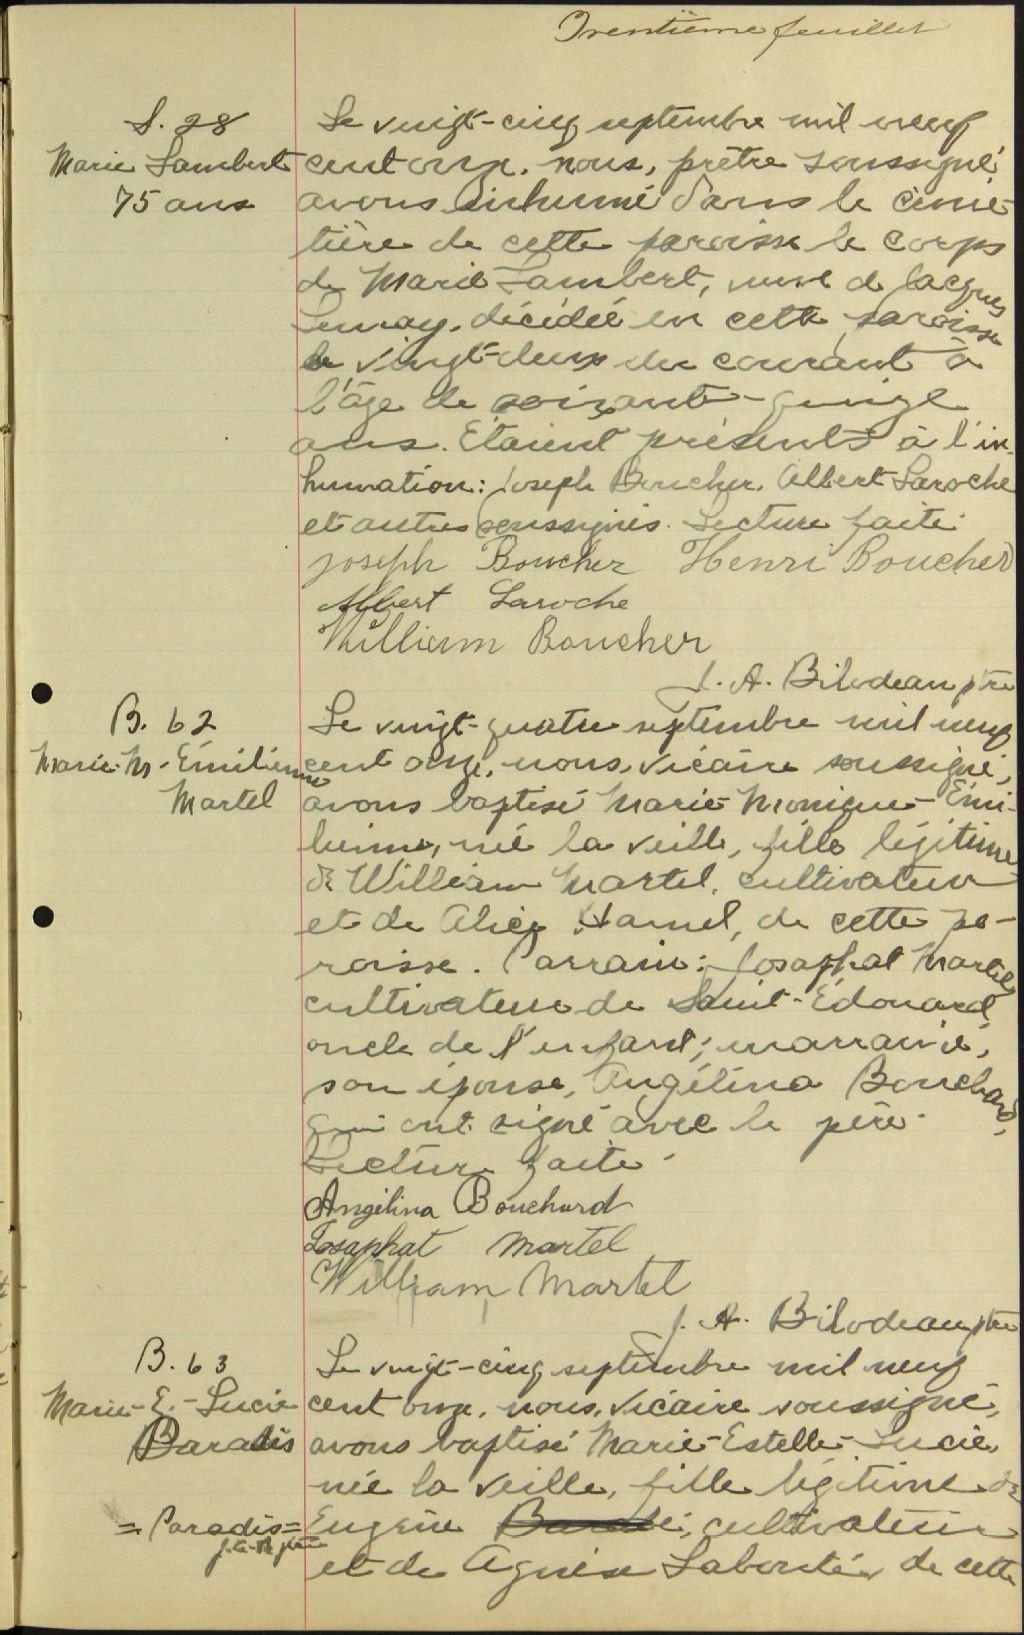 Trentième feuillet
S. 28
Marie Lambert
75 ans
Le vingt-cinq septembre mil neuf
cent onze, nous, prêtre soussigné
avons inhumé dans le cime-
tière de cette paroisse le corps
de Marie Lambert, veuve de Jacques
Lemay, décédée en cette paroisse
le vingt-deux du courant à
l'âge de soixante-quinze
ans. Etaient présents à l'in-
humation: Joseph Boucher, Albert Laroche
et autres soussignés. Lecture faite.
Joseph Boucher Henri Boucher
Albert Laroche
William Boucher
J. A. Bilodeau ptre
B. 62
Marie-M.-Émilienne
Martel
Le vingt-quatre septembre mil neuf
cent onze, nous, vicaire soussigné,
avons baptisé Marie-Monique-Émi-
lienne, née la veille, fille légitime
de William Martel, cultivateur
et de Alice Hamel, de cette pa-
roisse. Parrain: Josaphat Martel,
cultivateur de Saint-Édouard,
oncle de l'enfant; marraine,
son épouse, Angélina Bouchard,
qui ont signé avec le père.
Lecture faite.
Angélina Bouchard
Josaphat Martel
William Martel
J. A. Bilodeau ptre
B. 63
Marie-E.-Lucie
Paradis
Le vingt-cinq septembre mil neuf
cent onze, nous, vicaire soussigné,
avons baptisé Marie-Estelle-Lucie,
née la veille, fille légitime de
= Paradis =
J.A.B. ptre
Eugène, cultivateur
et de Agnèse Laberté, de cette